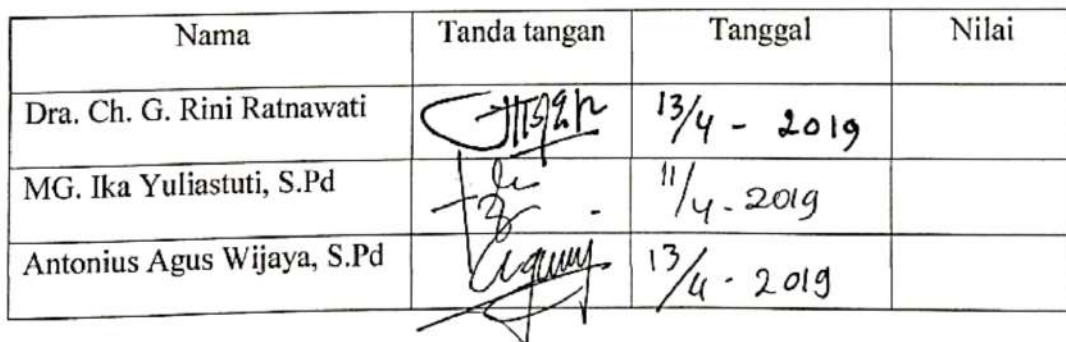 Nama Tanda tangan Tanggal Nilai
Dra. Ch. G. Rini Ratnawati 13/4 - 2019
MG. Ika Yuliastuti, S.Pd 11/4 - 2019
Antonius Agus Wijaya, S.Pd 13/4 - 2019